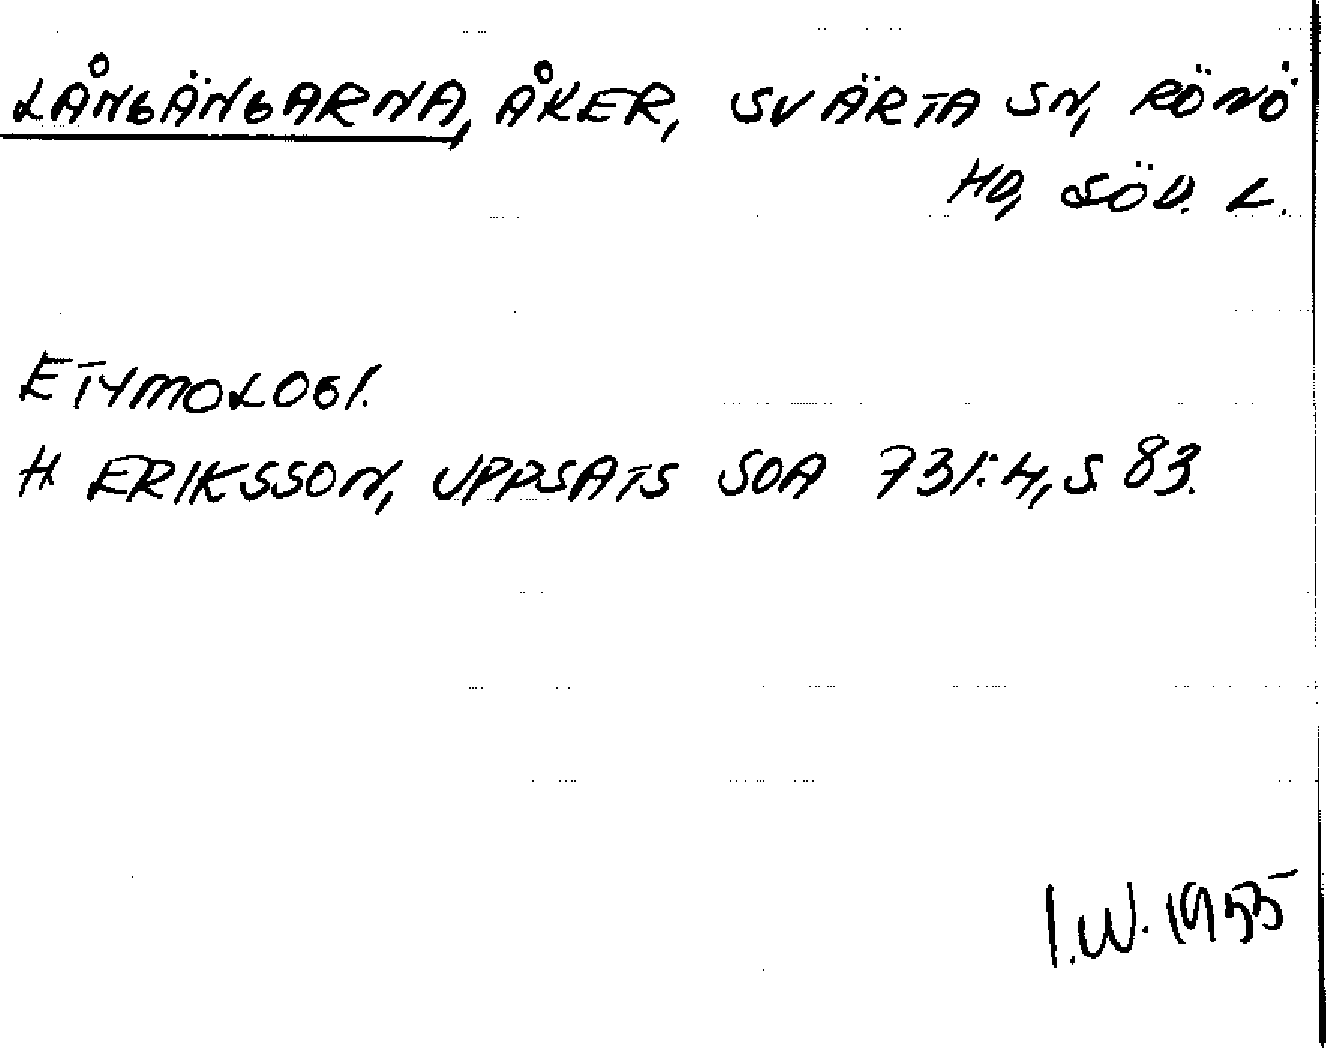 LÅNGÄNGARNA, ÅKER, SVÄRTA SN, RÖNÖ
HD, SÖD. L.
ETYMOLOGI.
H ERIKSSON, UPPSATS SOA 731:4, S 83.
I.W. 1955